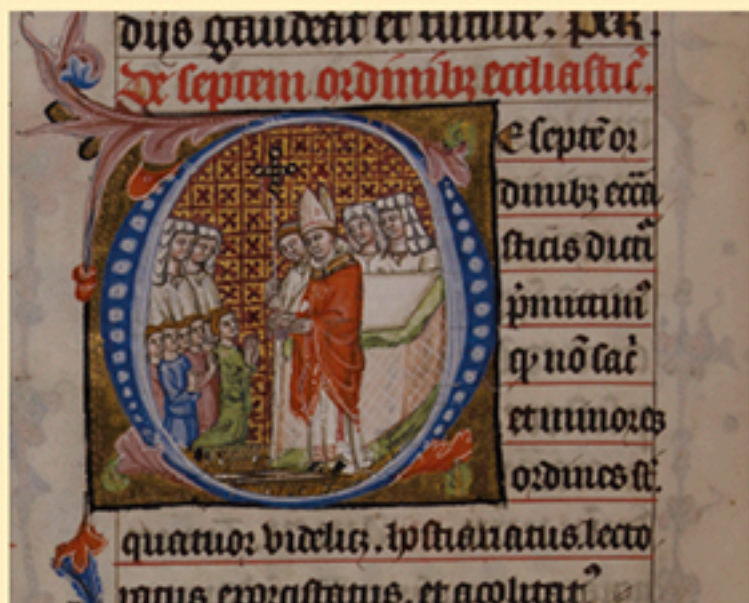 dijs gaudeat et
De septem ordinibz ecclīastic̄.
E septē or
dinibz ecc̄a
sticis dicti
p̄mittim᷒
qꝫ nō sac̄
et minores
ordines st̄.
quatuor videlicꝫ. hostiariatus. lecto
ratus exorcistatus. et acolitat᷒